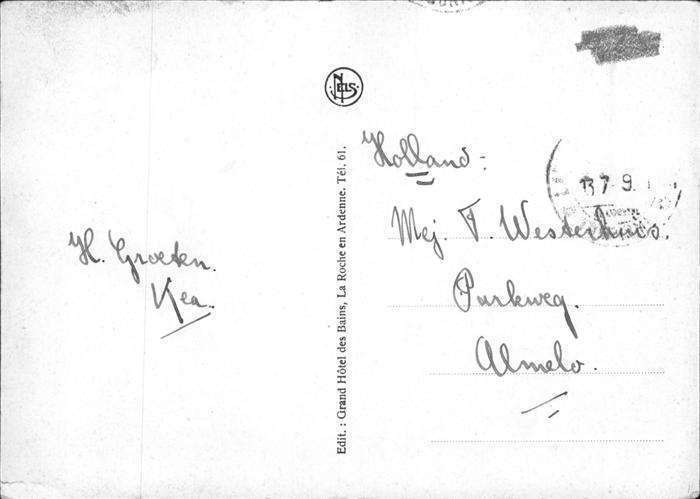 NELS
Edit. : Grand Hôtel des Bains, La Roche en Ardenne. Tél. 61.
H. Groeten.
Kea.
Holland:
Mej. F. Westerhuis.
Parkweg.
Almelo.